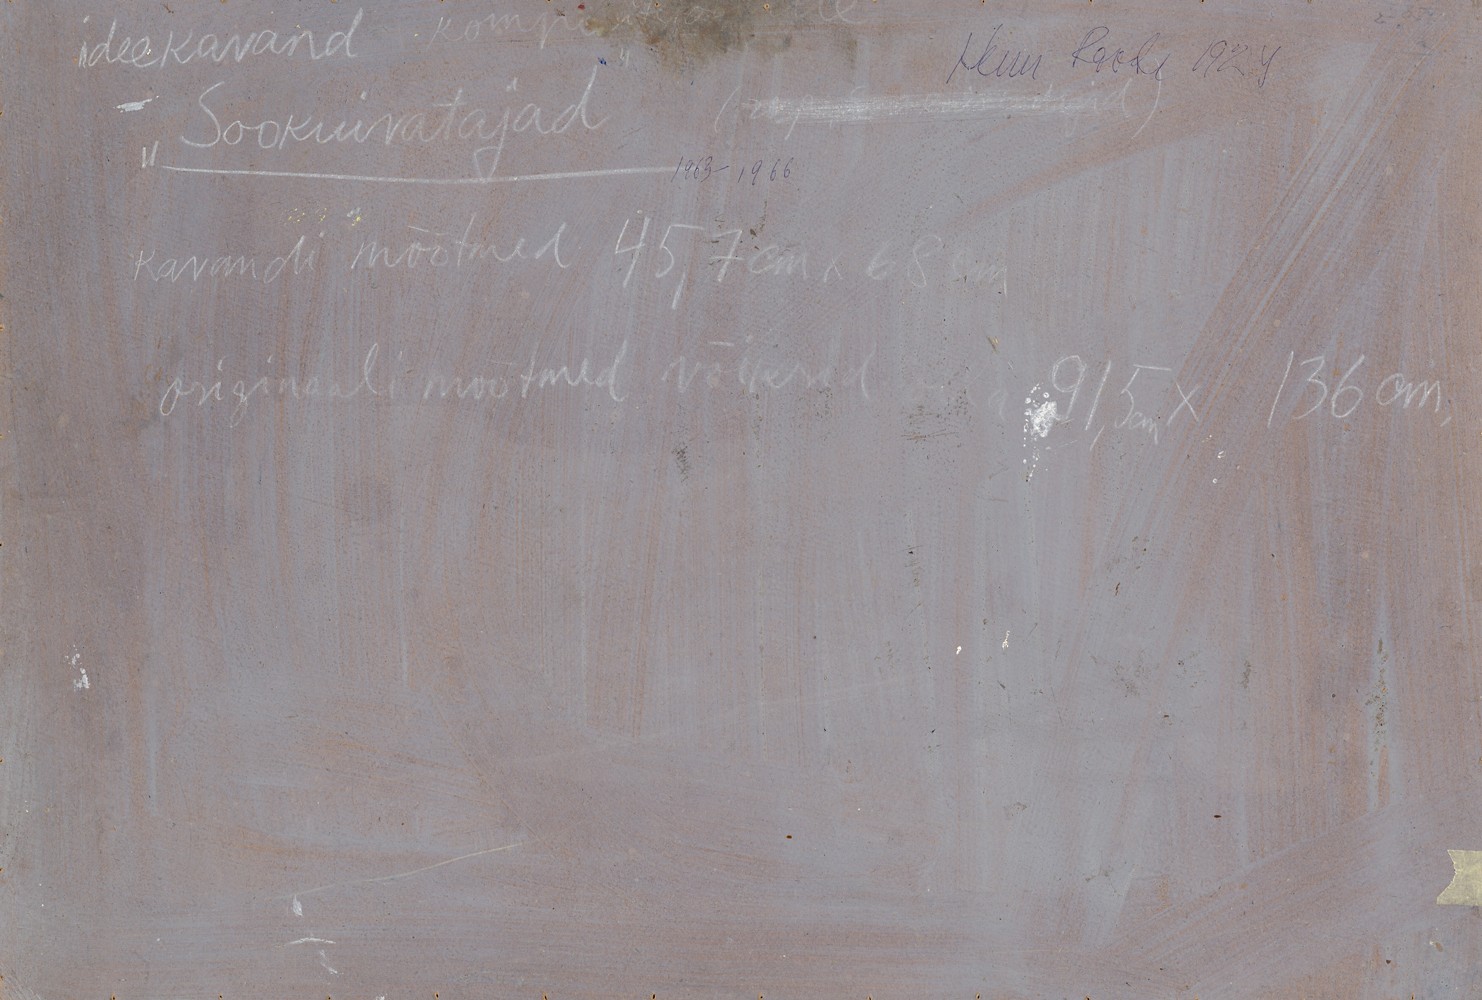 ideekavand
Henn Roode 1924
"Sookuivatajad"
1963-1966
kavandi mõõtmed 45,7 cm x 68 cm
originaali mõõtmed võiksid 91,5 cm x 136 cm,